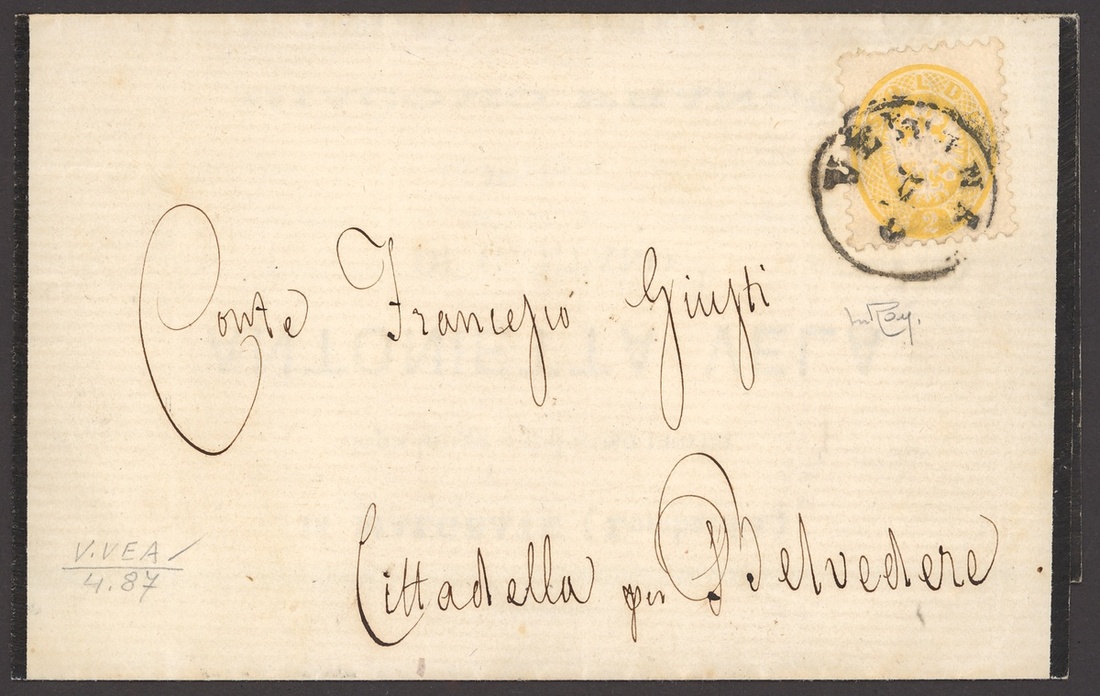 Conte Francesco Giusti
Cittadella per Belvedere
V.VEA
4.87